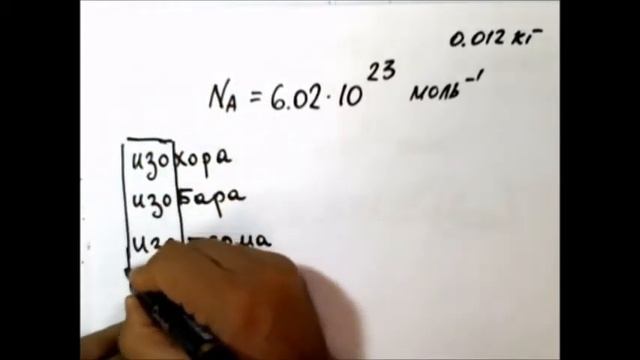 0.012 кг
N_A = 6.02·10²³ моль⁻¹
изохора
изобара